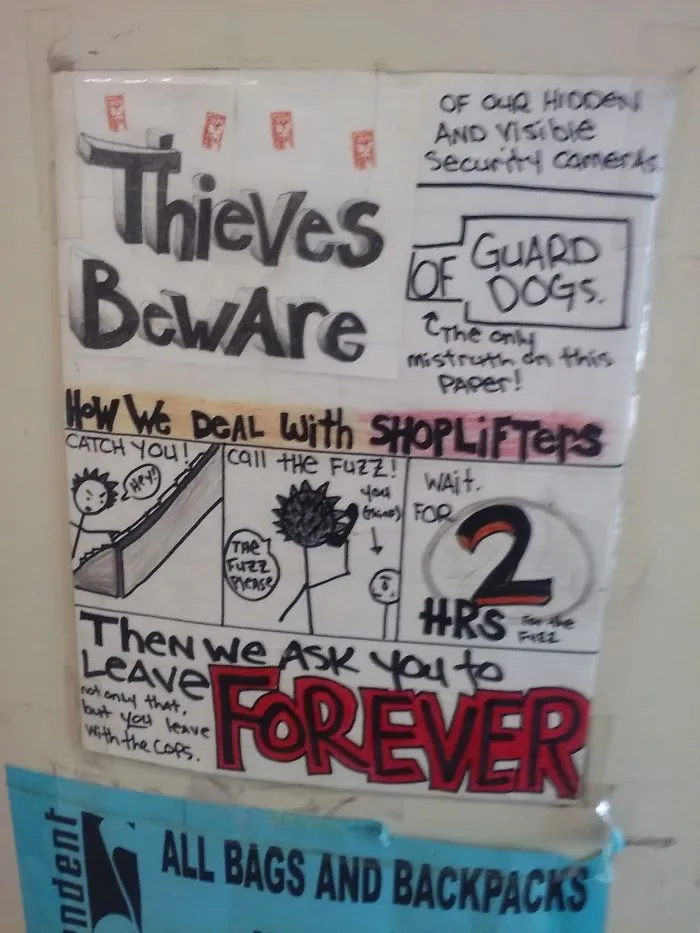 Thieves
Beware
OF OUR HIDDEN
AND Visible
Security Cameras
OF GUARD
DOGS.
The only
mistruth on this
PAPER!
HOW WE DEAL With SHOPLiFTers
CATCH YOU!
Hey!
Call THE FUZZ!
you
THE
FUZZ
PLEASE
WAit.
FOR
2
HRS For the
FUZZ
THEN WE ASK YOU to
LEAVE
FOREVER
not only that,
but you leave
with the cops.
ndent
ALL BAGS AND BACKPACKS